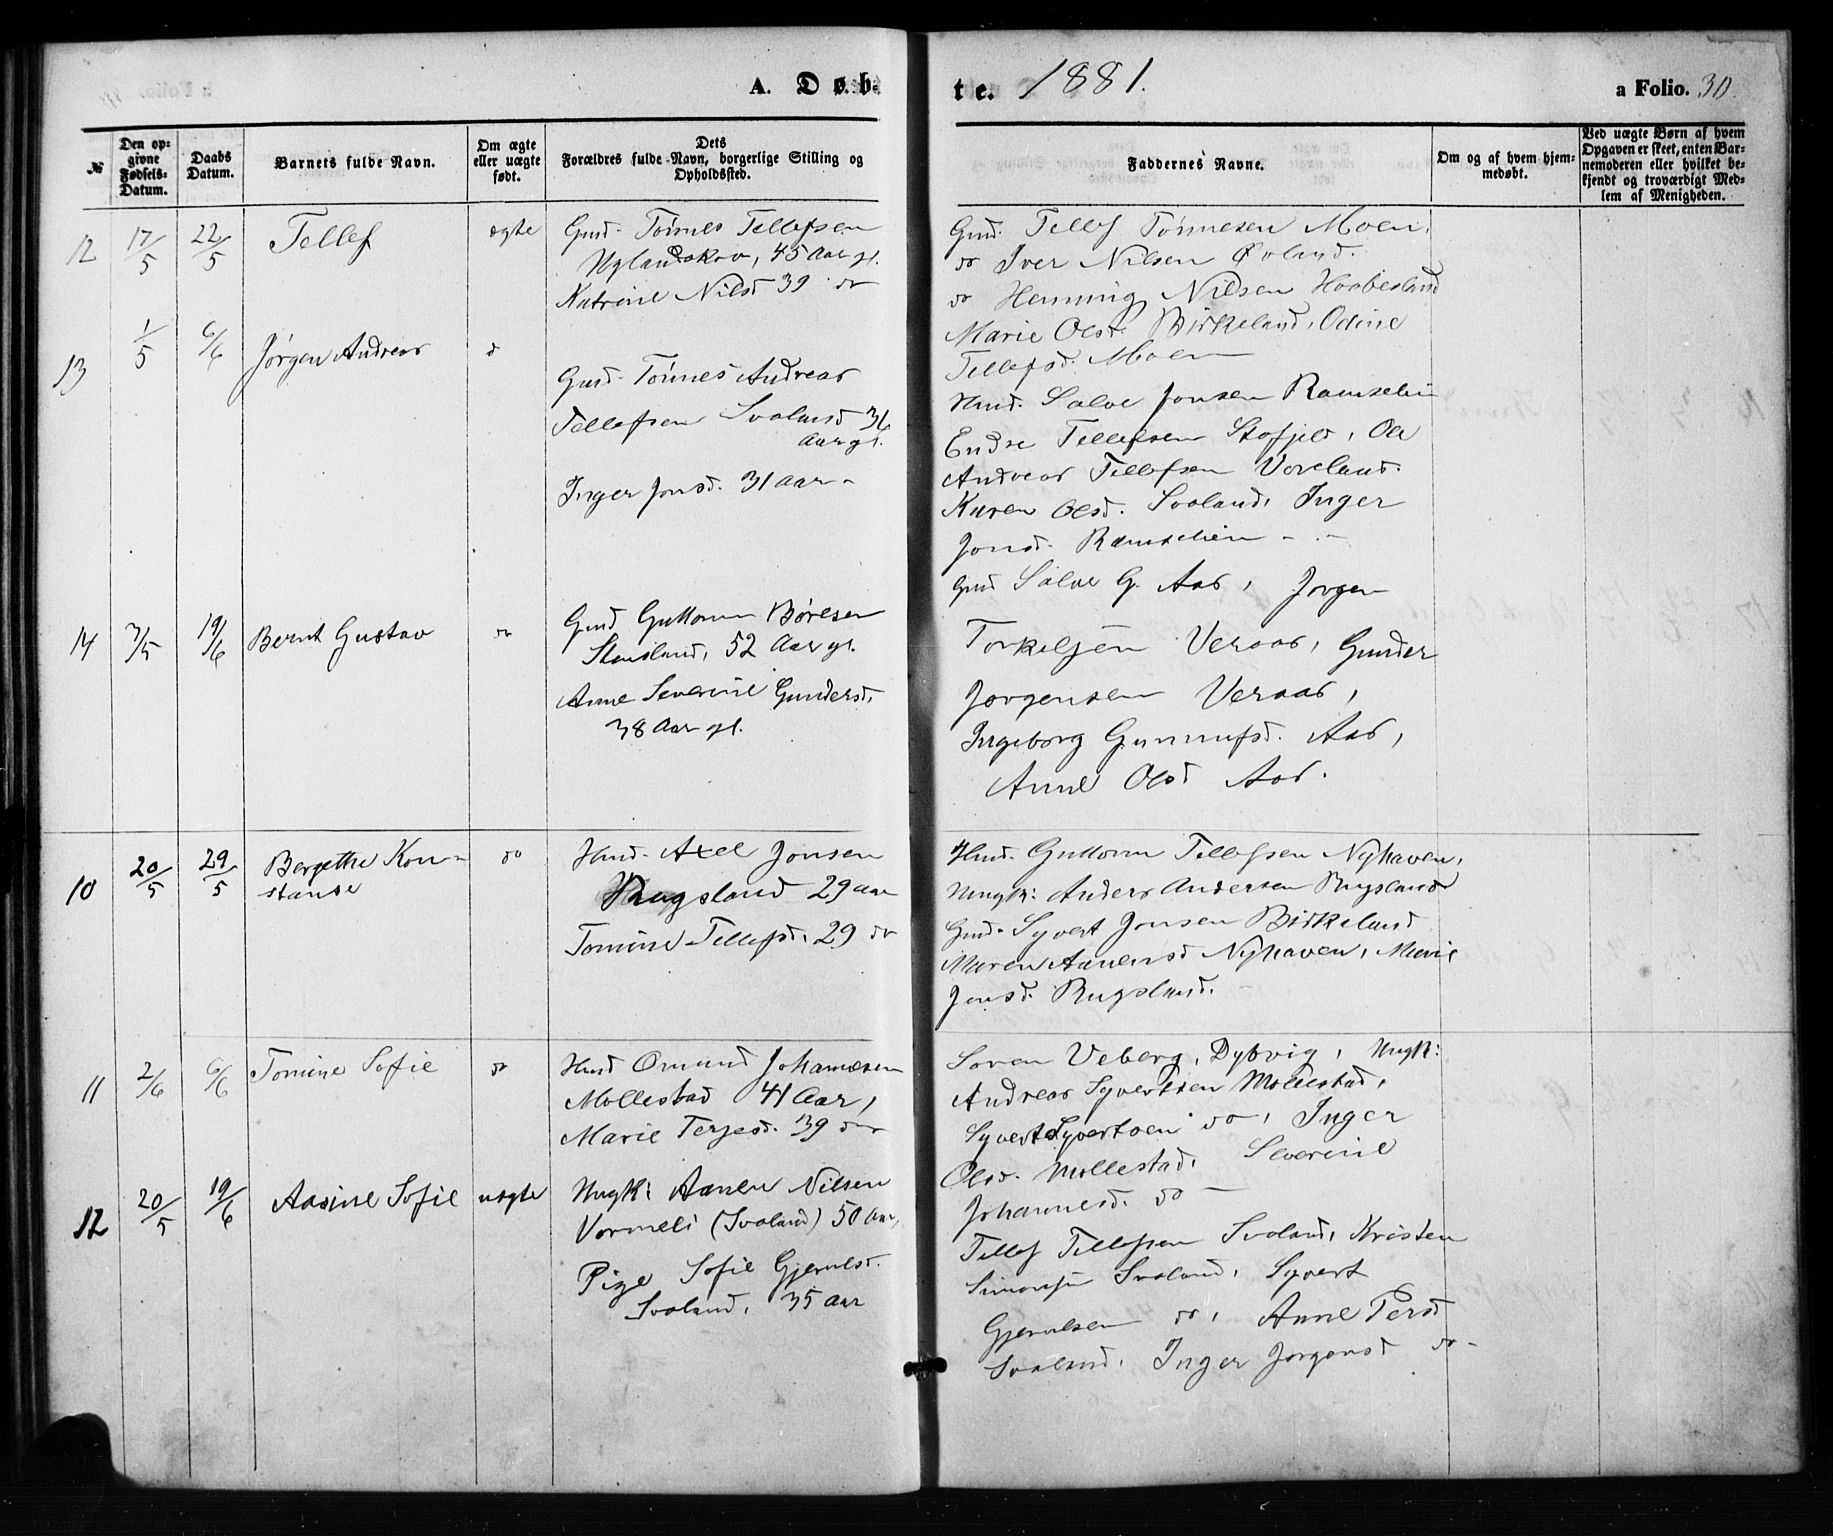 A. Døb-
te. 1881.
a Folio. 30.
№
Den op-
givne
Fødsels-
Datum.
Daabs
Datum.
Barnets fulde Navn.
Om ægte
eller uægte
født.
Dets
Forældres fulde Navn, borgerlige Stilling og
Opholdssted.
Faddernes Navne.
Om og af hvem hjem-
medøbt.
Ved uægte Børn af hvem
Opgaven er skeet, enten Bar-
nemoderen eller hvilket be-
kjendt og troværdigt Med-
lem af Menigheden.
12 17/5 22/5 Tellef ægte
Gmd. Tönnes Tellefsen
Uglandskov, 45 Aar gl.
Katrine Nilsd 39 do
Gmd. Tellef Tönnesen Moen,
do Iver Nilsen Øvland.
do Henning Nilsen Haabesland
Marie Olsd. Birkeland, Odine
Tellefsd. Moen
13 1/5 6/6 Jörgen Andreas d
Gmd. Tönnes Andreas
Tellefsen Svaland 36
Aar gl.
Inger Jonsd. 31 Aar -
Hmd. Salve Jonsen Ramselien
Endre Tellefsen Stofjeld, Ole
Andreas Tellefsen Voreland.
Karen Olsd. Svaland, Inger
Jonsd. Ramselien -
14 3/5 19/6 Bernt Gustav do
Gmd Guttorm Böresen
Stensland, 52 Aar gl.
Anne Severine Gundersd.
38 Aar gl.
Gmd Salve G. Aas, Jorgen
Torkelsen Veraas, Gunder
Jorgensen Veraas,
Ingeborg Gunnufsd. Aas,
Anne Olsd Aas.
10 20/5 29/5 Bergethe Kon-
stanse do
Hmd. Axel Jonsen
Rugsland 29 aar
Tomine Tellefsd. 29 do
Hmd. Guttorm Tellefsen Nyhaven,
Ungk: Anders Andersen Rugsland
Gmd. Syvert Jonsen Birkeland
Maren Aanensd Nyhaven, Marie
Jensd. Rugsland.
11 2/6 6/6 Tomine Sofie do
Hmd Omund Johannesen
Mollestad 41 Aar,
Marie Terjesd. 39 do
Soren Veberg, Dybvig, Ungk:
Andreas Syvertsen Mollestad,
Syvert Syvertsen do, Inger
Olsd. Mollestad, Severine
Johannesd. do -
12 20/5 19/6 Aasine Sofie uægte
Ungk: Aanen Nilsen
Vormeli (Svaland) 50 Aar,
Pige Sofie Gjerulsd.
Svaland, 35 Aar
Tellef Tellefsen Svaland, Kristen
Simonsen Svaland, Syvert
Gjerulsen do, Anne Persd
Svaland, Inger Jorgensd do -